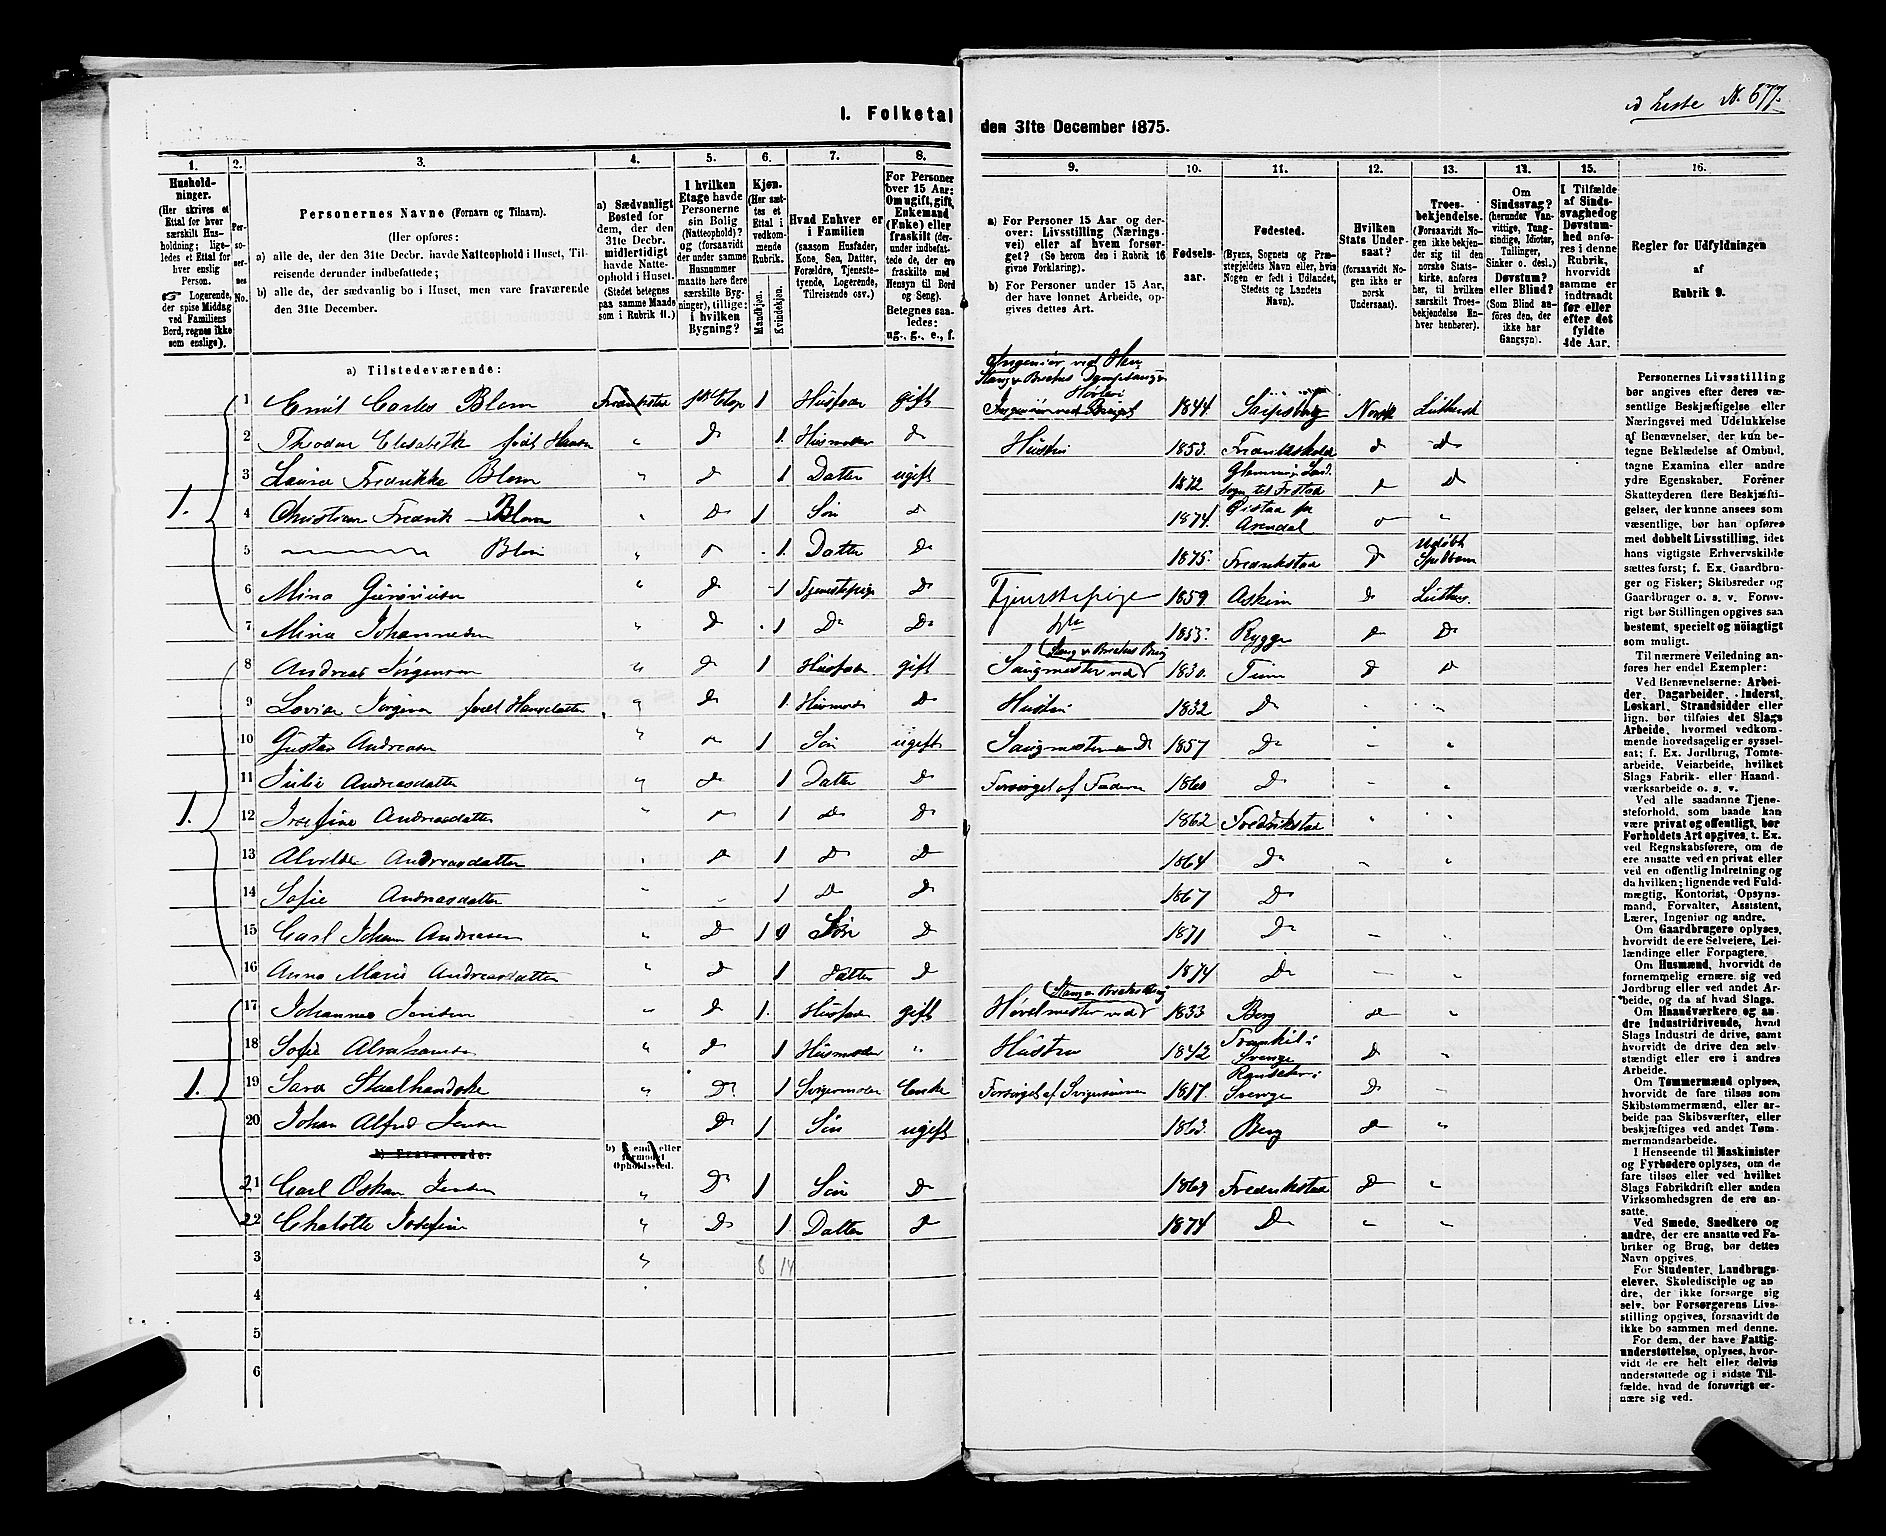 d Liste N. 677.
I. Folketal
den 31te December 1875.
1.
2.
3.
4.
5.
6.
7.
8.
9.
10.
11.
12.
13.
14.
15.
16.
Husholdninger.
(Her skrives et
Ettal for hver
særskilt Husholdning;
ligeledes et Ettal for
hver enslig
Person.
☞ Logerende,
der spise Middag
ved Familiens
Bord, regnes ikke
som enslige).
Personernes No.
Personernes Navne (Fornavn og Tilnavn).
(Her opføres:
a) alle de, der den 31te Decbr. havde Natteophold i Huset, Tilreisende derunder indbefattede;
b) alle de, der sædvanlig bo i Huset, men vare fraværende
den 31te December.
a) Sædvanligt
Bosted for
dem, der den
31te Decbr.
midlertidigt
havde Natteophold
i Huset.
(Stedet betegnes
paa samme Maade
som i Rubrik 11.)
I hvilken
Etage havde
Personerne
sin Bolig
(Natteophold)?
og (forsaavidt
der under samme
Husnummer
maatte høre flere
særskilte Bygninger), tillige:
i hvilken
Bygning?
Kjøn.
(Her sættes et
Ettal i
vedkommende
Rubrik.
Mandkjøn.
Kvindekjøn.
Hvad Enhver er
i Familien
(saasom Husfader,
Kone, Søn, Datter,
Forældre, Tjenestetyende, Logerende,
Tilreisende osv.)
For Personer
over 15 Aar:
Om ugift, gift,
Enkemand
(Enke) eller
fraskilt (derunder indbefattede, der ere
fraskilte med
Hensyn til Bord
og Seng).
Betegnes saaledes:
ug., g., e., f.
a) For Personer 15 Aar og derover: Livsstilling (Næringsvei) eller af hvem forsørget? (Se herom den i Rubrik 16
givne Forklaring).
b) For Personer under 15 Aar,
der have lønnet Arbeide, opgives dettes Art.
Fødselsaar.
Fødested.
(Byens, Sognets og Præstegjeldets Navn eller, hvis
Nogen er født i Udlandet,
Stedets og Landets
Navn).
Hvilken
Stats Undersaat?
(forsaavidt Nogen ikke er
norsk
Undersaat).
Troesbekjendelse.
(Forsaavidt Nogen ikke bekjender sig til den
norske Statskirke, anføres
her, til hvilken
særskilt Troesbekjendelse Enhver henhører).
Om
Sindssvag?
(herunder Vanvittige, Tungsindige, Idioter,
Tullinger,
Sinker o. desl.)
Døvstum?
eller Blind?
(Som Blind anføres den, der
ikke har
Gangsyn).
I Tilfælde
af Sindssvaghed og
Døvstumhed anføres i denne
Rubrik,
hvorvidt
samme er
indtraadt
før eller
efter det
fyldte
4de Aar.
Regler for Udfyldningen
af
Rubrik 9.
a) Tilstedeværende:
1 Emil Carles Blom Fredrikstad 1ste Etap 1 Husfader gift 1844 Sarpsborg Norsk Luthersk
2 Theodor Elisabeth født Hansen " D 1. Husmoder D Hustru 1853. Fredrikshald D D
3 Laura Fredrikke Blom " D 1 Datter ugift 1872 Glemminge Landsogn til Frstad D D
1.
4 Christian Fredrik Blom " D 1 Søn D 1874. Øistad pr Arendal D "
5 Blom " D 1. Datter D 1875. Fredrikstad D Udøbt Spedbarn
6 Mina " D 1 Tjenestepige D Tjenstepige 1859 Askim D Luthers.
7 Mina Johannesen " D 1 D D 1855. Rygge D D
8 Andreas Jørgensen " D 1 Husfader gift Saugmester ved Stang & Brækes Brug 1830. Tune D D
9 Lovise Jørgine født Hansdatter " D 1. Husmoder D Hustru 1832 D " "
10 Gustav Andreasen " D 1 Søn ugift 1857 D " "
11 Julie Andreasdatter " D 1 Datter D Forsørget af Faderen 1860 D " "
1.
12 Josefine Andreasdatter " D 1 D D 1862 Fredrikstad " "
13 Alvilde Andreasdatter " D 1 D D 1864 D " "
14 Sofie Andreasdatter " " 1 D D 1867 D
15 Carl Johan Andreasen " D 1 Søn D 1871 D
16 Anna Marie Andreasdatter " D 1 Datter D 1874 D " "
17 Johannes Jensen " D 1. Husfader gift Høvelmester ved Stang & Brækes Brug 1833 Berg D "
18 Sofie " D 1 Husmoder " Hustru 1842 Sverige D "
1.
19 Sara Staalhandske " D 1 Svigermoder Enke Forsørget af Svigersønnen 1817. Sverige D "
20 Johan Alfred Jensen D 1 Søn ugift 1863. Berg D "
b) Fraværende:
b) Kjendt eller
formodet
Opholdssted.
21 Carl Oskar Jensen " D 1 Søn D 1869 Fredrikstad D "
22 Chalotte Josefine " D 1. Datter D 1874 D " "
3 " 8 14
4
5
6
Personernes Livsstilling
bør angives efter deres væsentlige Beskjæftigelse eller
Næringsvei med Udelukkelse
af Benævnelser, der kun betegne Beklædelse af Ombud,
tagne Examina eller andre
ydre Egenskaber. Forener
Skatteyderen flere Beskjæftigelser, der kunne ansees som
væsentlige, bør han opføres
med dobbelt Livsstilling, idet
hans vigtigste Erhvervskilde
sættes først; f. Ex. Gaardbruger og Fisker; Skibsreder og
Gaardbruger o. s. v. Forøvrigt bør Stillingen opgives saa
bestemt, specielt og nøiagtigt
som muligt.
Til nærmere Veiledning anføres her endel Exempler:
Ved Benævnelserne: Arbeider, Dagarbeider, Inderst,
Løskarl, Strandsidder eller
lign. bør tilføies det Slags
Arbeide, hvormed vedkommende hovedsagelig er sysselsat; f. Ex. Jordbrug, Tomtearbeide, Veiarbeide, hvilket
Slags Fabrik- eller Haandværksarbeide o. s. v.
Ved alle saadanne Tjenesteforhold, som baade kan
være privat og offentligt, bør
Forholdets Art opgives, t. Ex.
ved Regnskabsførere, om de
ere ansatte ved en privat eller
ved en offentlig Indretning og
da hvilken; lignende ved Fuldmægtig, Kontorist, Opsynsmand, Forvalter, Assistent,
Lærer, Ingeniør og andre.
Om Gaardbrugere oplyses,
hvorvidt de ere Selveiere, Leilændinge eller Forpagtere.
Om Husmænd, hvorvidt de
fornemmelig ernære sig ved
Jordbrug eller ved andet Arbeide, og da af hvad Slags.
Om Haandværkere og andre Industridrivende, hvad
Slags Industri de drive, samt
hvorvidt de drive den selvstændigt eller ere i andres
Arbeide.
Om Tømmermænd oplyses,
hvorvidt de fare tilsøs som
Skibstømmermænd, eller arbeide paa Skibsværfter, eller
beskjæftiges ved andet Tømmermandsarbeide.
I Henseende til Maskinister
og Fyrbødere oplyses, om de
fare tilsøs eller ved hvilket
Slags Fabrikdrift eller anden
Virksomhedsgren de ere ansatte.
Ved Smede, Snedkere og
andre, der ere ansatte ved Fabriker og Brug, bør dettes
Navn opgives.
For Studenter, Landbrugselever, Skoledisciple og andre, der ikke forsørge sig
selv, bør Forsørgerens Livsstilling opgives, forsaavidt de
ikke bo sammen med denne.
For dem, der have Fattigunderstøttelse, oplyses, hvorvidt de ere helt eller delvis
understøttede og i sidste Tilfælde, hvad de forøvrigt ernære sig ved.